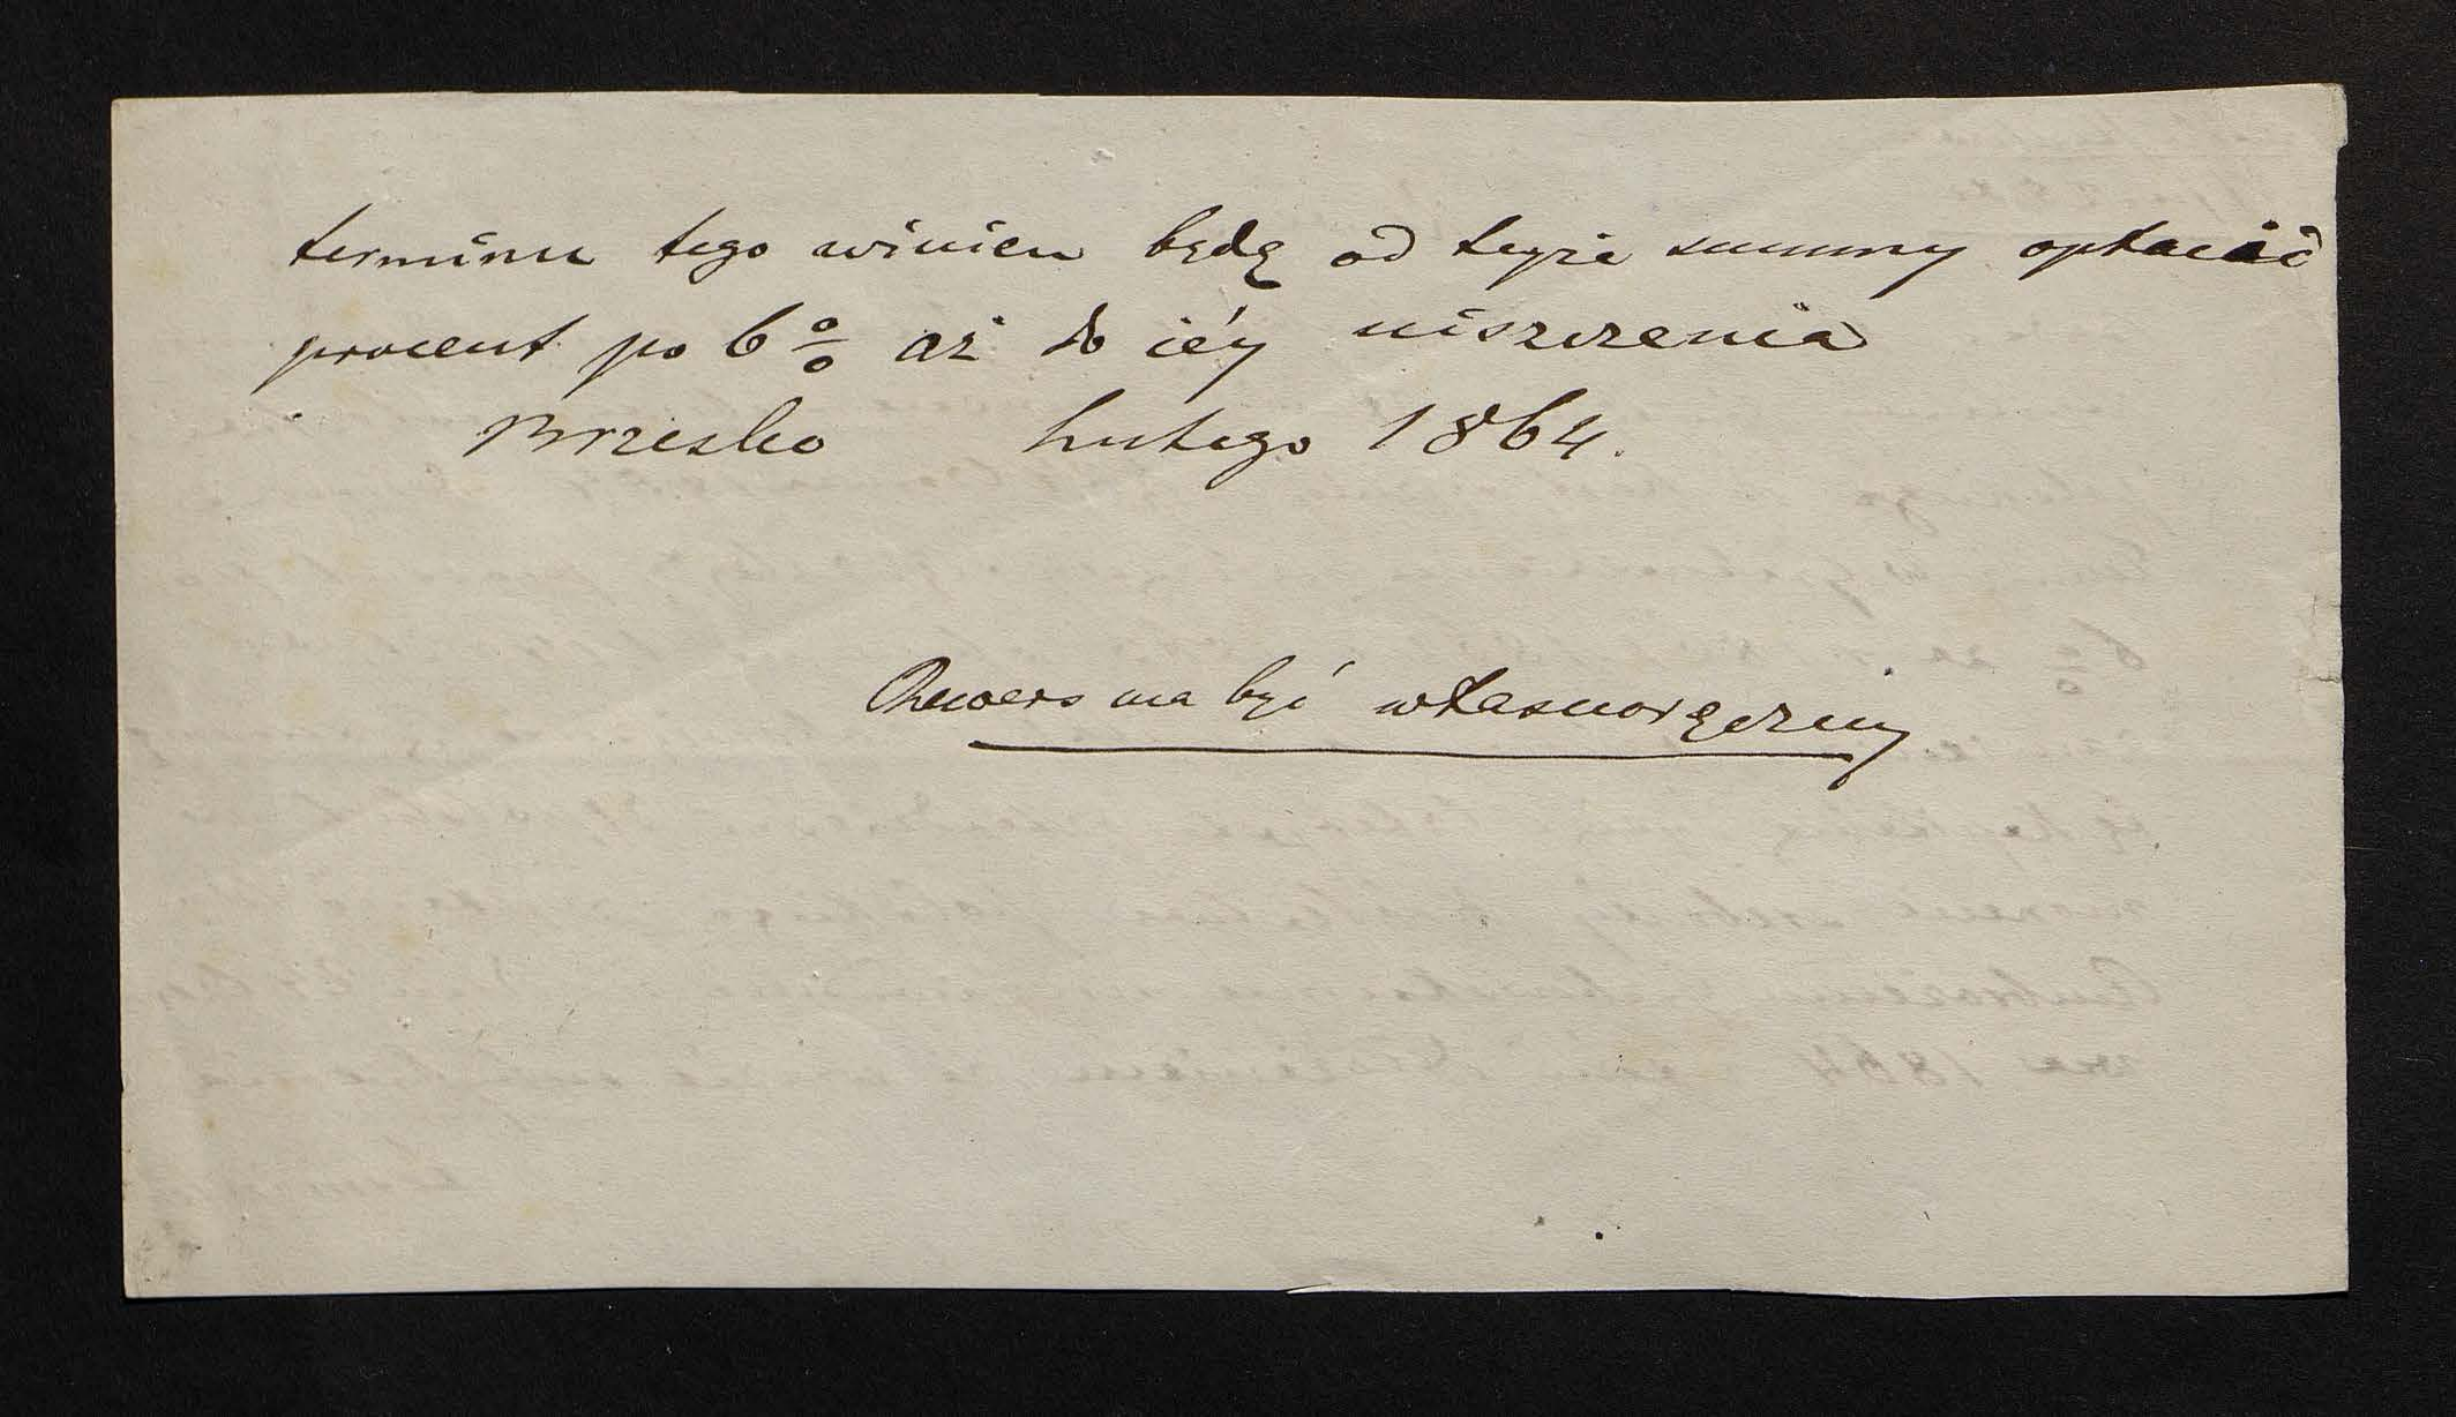 terminu tego winien będę od teyże summy opłacać
procent po 6% aż do iéy uiszczenia
Brzesko Lutego 1864.
Rewers ma być własnoręczny